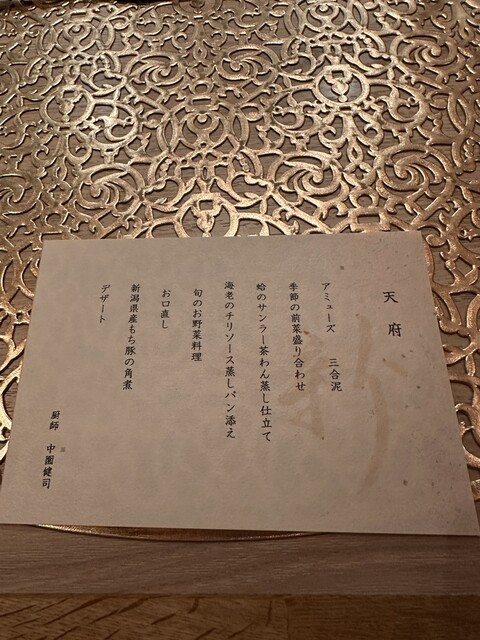 天府
アミューズ　三合泥
季節の前菜盛り合わせ
蛤のサンラー茶わん蒸し仕立て
海老のチリソース蒸しパン添え
旬のお野菜料理
お口直し
新潟県産もち豚の角煮
デザート
厨師　中園健司